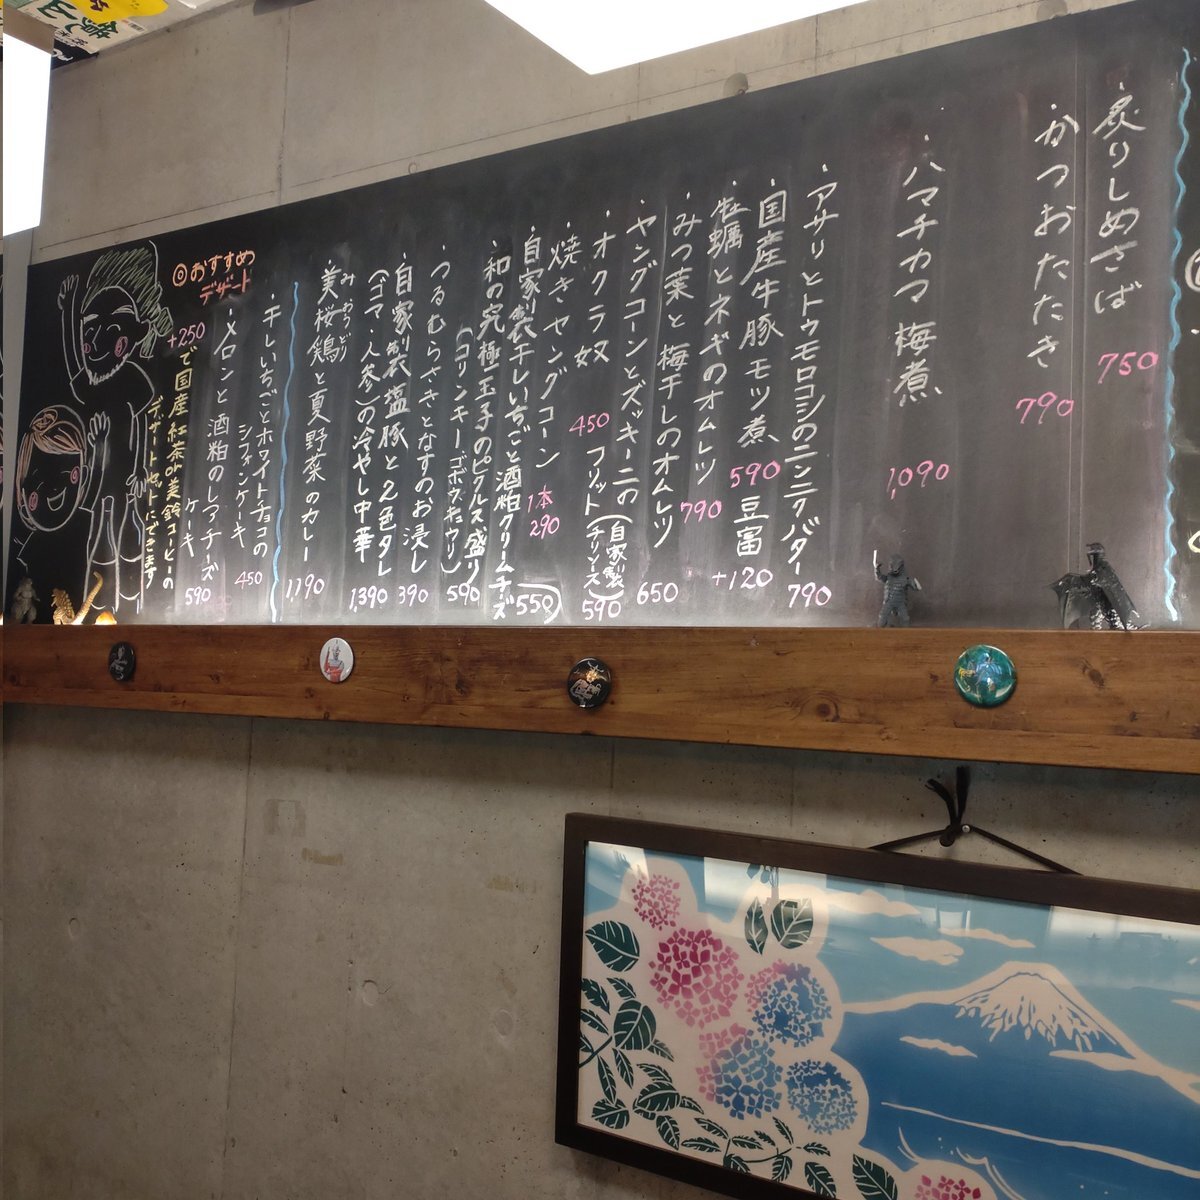 ・炙りしめさば 750
・かつおたたき 790
・ハマチカマ梅煮 1,090
・アサリとトウモロコシのニンニクバター 790
・国産牛豚モツ煮 590 豆富 +120
・牡蠣とネギのオムレツ 790
・みつ葉と梅干しのオムレツ 650
・ヤングコーンとズッキーニの
フリット(自家製チリソース) 590
・オクラ奴 450
・焼きヤングコーン 1本 290
・自家製干しいちごと酒粕クリームチーズ 550
・和の究極玉子のピクルス盛り
(コリンキー・ゴボウ・キュウリ) 590
・つるむらさきとなすのお浸し 390
・自家製塩豚と2色ダレ
(ゴマ・人参)の冷やし中華 1,390
・美桜鶏と夏野菜のカレー 1,190
みおうどり
◎おすすめ
デザート
・干しいちごとホワイトチョコの
シフォンケーキ 450
・メロンと酒粕のレアチーズ
ケーキ 590
+250で国産紅茶or美鈴コーヒーの
デザートセットにできます